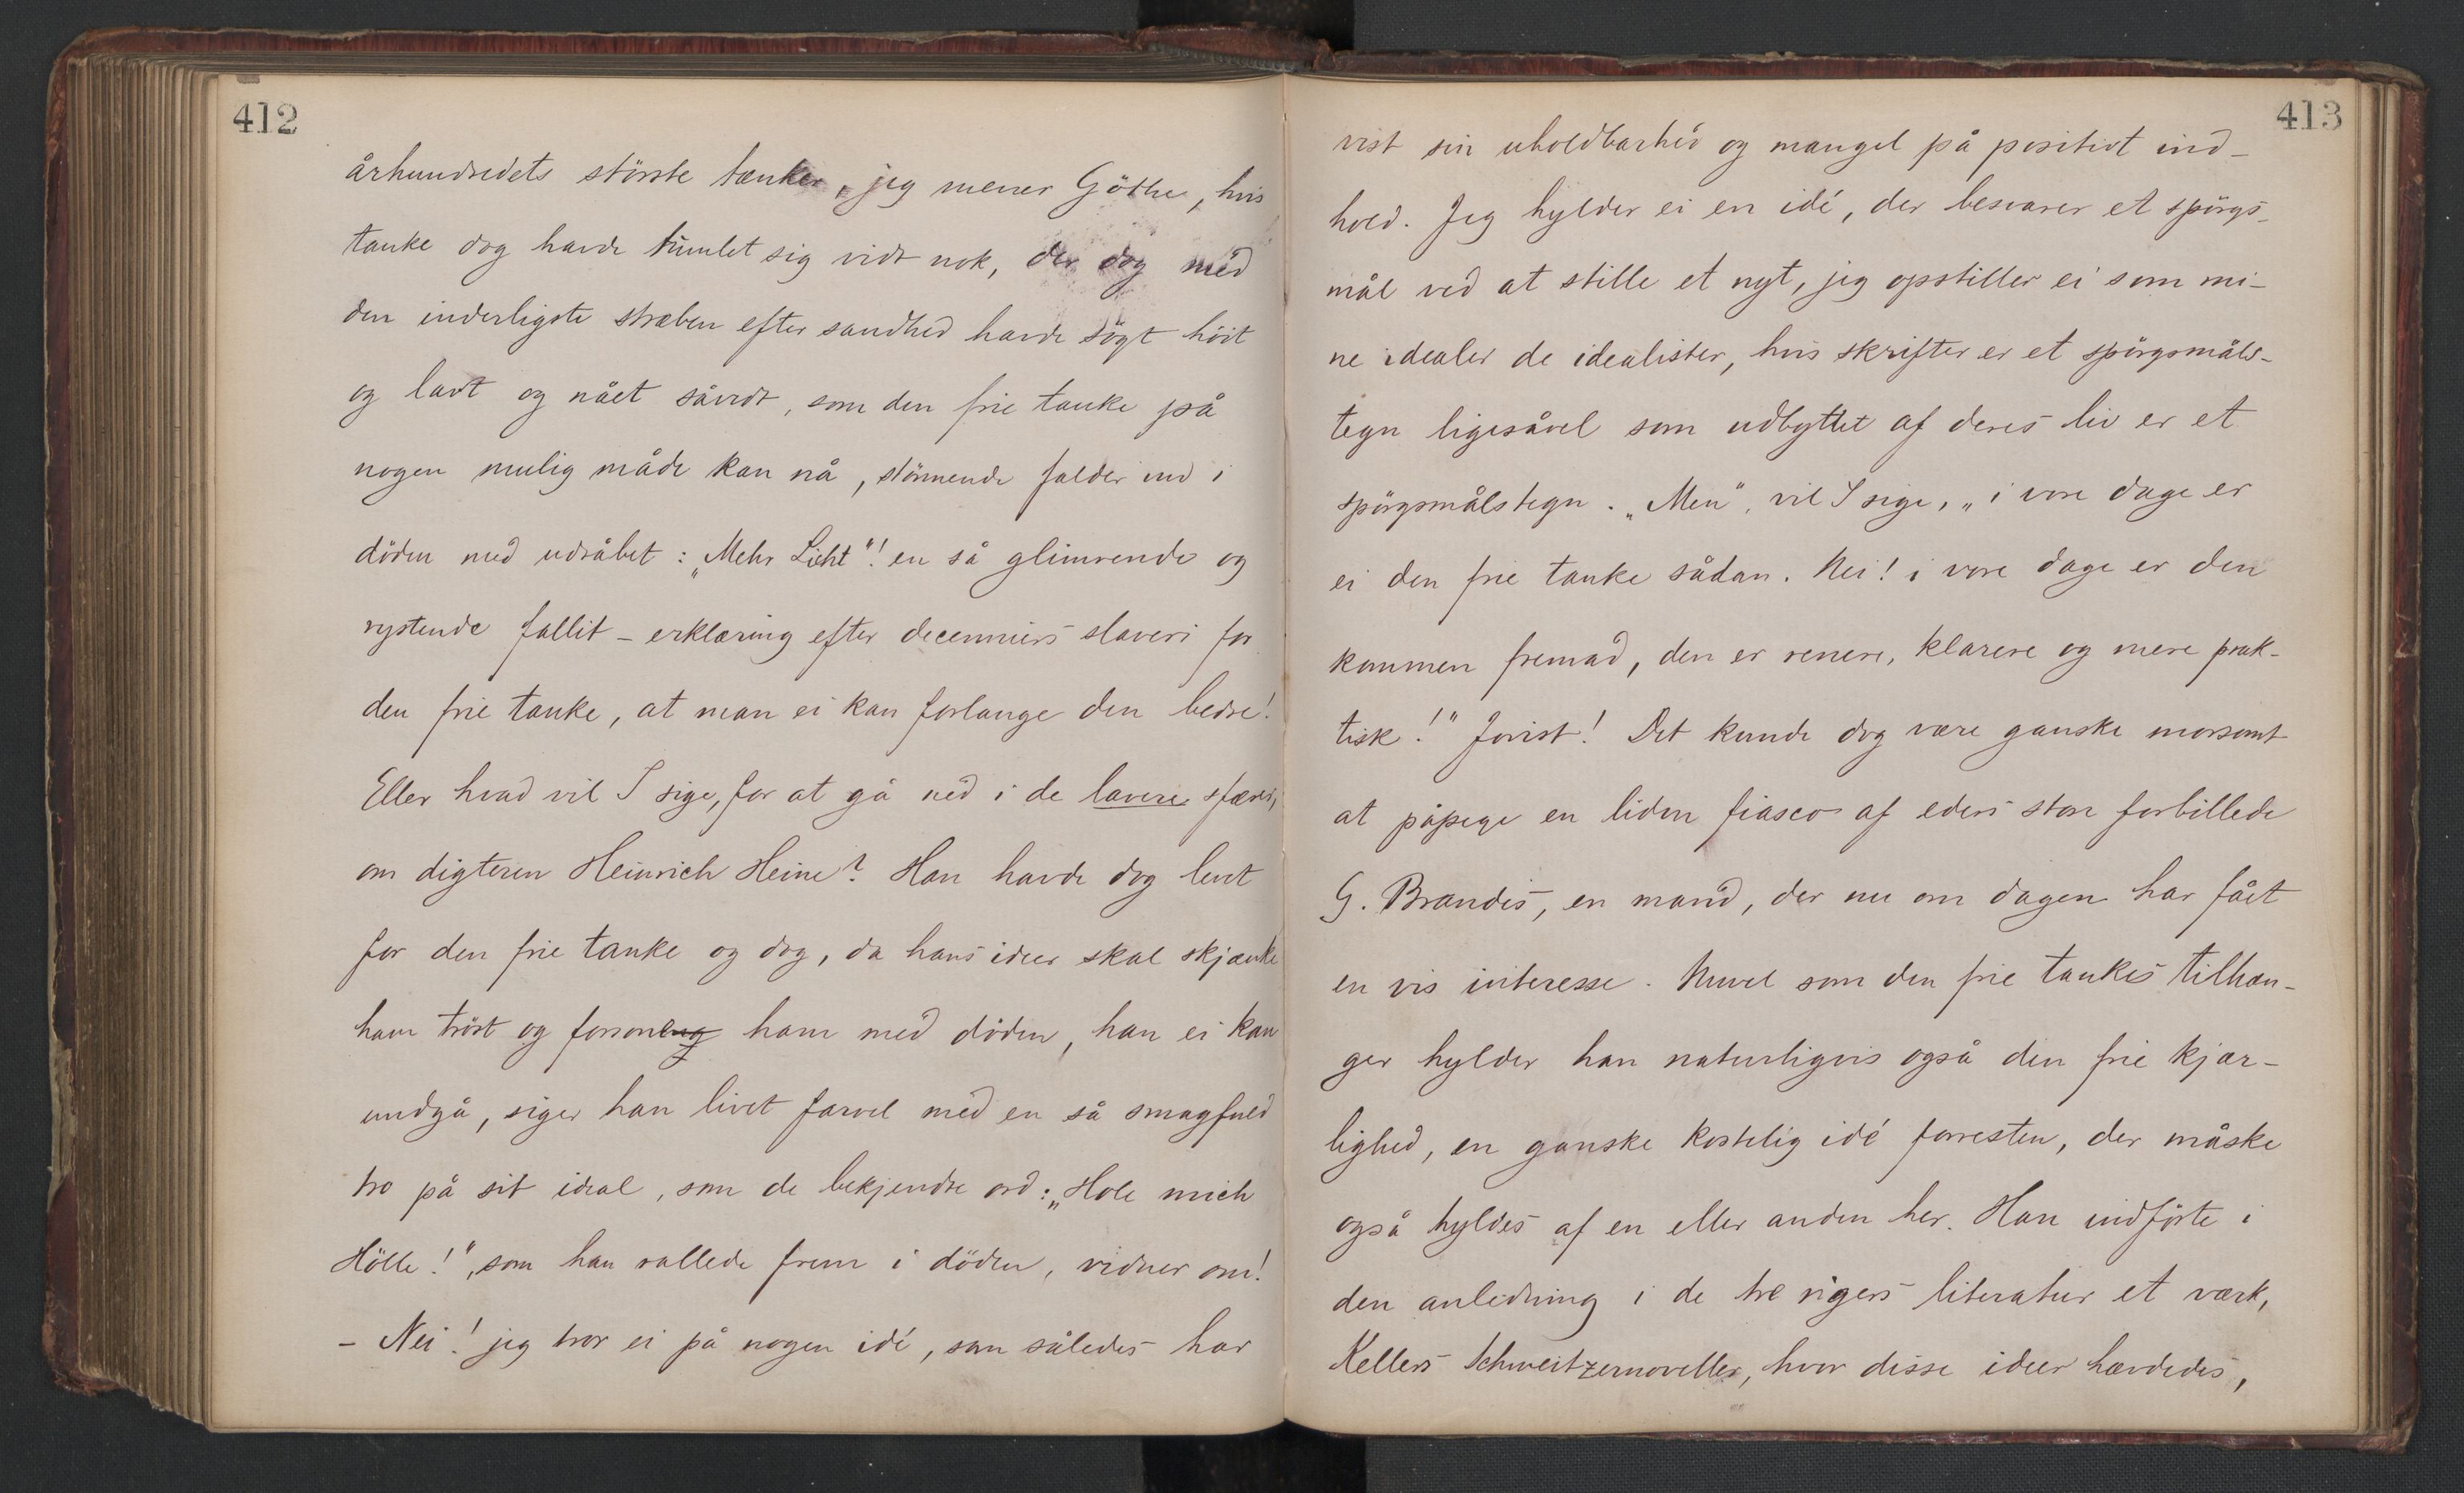 412
århundredets störste tænker, jeg mener Göthe, hvis
tanke dog havde tumlet sig vidt nok, der dog med
den inderligste stræben efter sandhed havde sögt höit
og lavt og nået såvidt, som den frie tanke på
nogen mulig måde kan nå, stönnende falder ind i
döden med udråbet: „Mehr Licht"! en så glimrende og
rystende fallit-erklæring efter decenniers slaveri for
den frie tanke, at man ei kan forlange den bedre!
Eller hvad vil I sige, for at gå ned i de lavere sfærer,
om digteren Heinrich Heine? Han havde dog levt
for den frie tanke og dog, da hans ideer skal skjænke
ham tröst og forsone ham med döden, han ei kan
undgå, siger han livet farvel med en så smagfuld
tro på sit ideal, som de bekjendte ord: „Hole mich
Hölle!", som han rallede frem i döden, vidner om!
- Nei! jeg tror ei på nogen idé, som således har
413
vist sin uholdbarhed og mangel på positivt ind-
hold. Jeg hylder ei en idé, der besvarer et spörgs-
mål ved at stille et nyt, jeg opstiller ei som mi-
ne idealer de idealister, hvis skrifter er et spörgsmåls-
tegn ligesåvel som udbyttet af deres liv er et
spörgsmålstegn. „Men", vil I sige, „i vore dage er
ei den frie tanke sådan. Nei! i vore dage er den
kommen fremad, den er renere, klarere og mere prak-
tisk!" Jovist! Det kunde dog være ganske morsomt
at påpege en liden fiasco af eders store forbillede
G. Brandes, en mand, der nu om dagen har fået
en vis interesse. Nuvel som den frie tankes tilhæn-
ger hylder han naturligvis også den frie kjær-
lighed, en ganske kostelig idé forresten, der måske
også hyldes af en eller anden her. Han indförte i
den anledning i de tre rigers literatur et værk,
Kellers Schweitzernoveller, hvor disse ideer hævdedes,